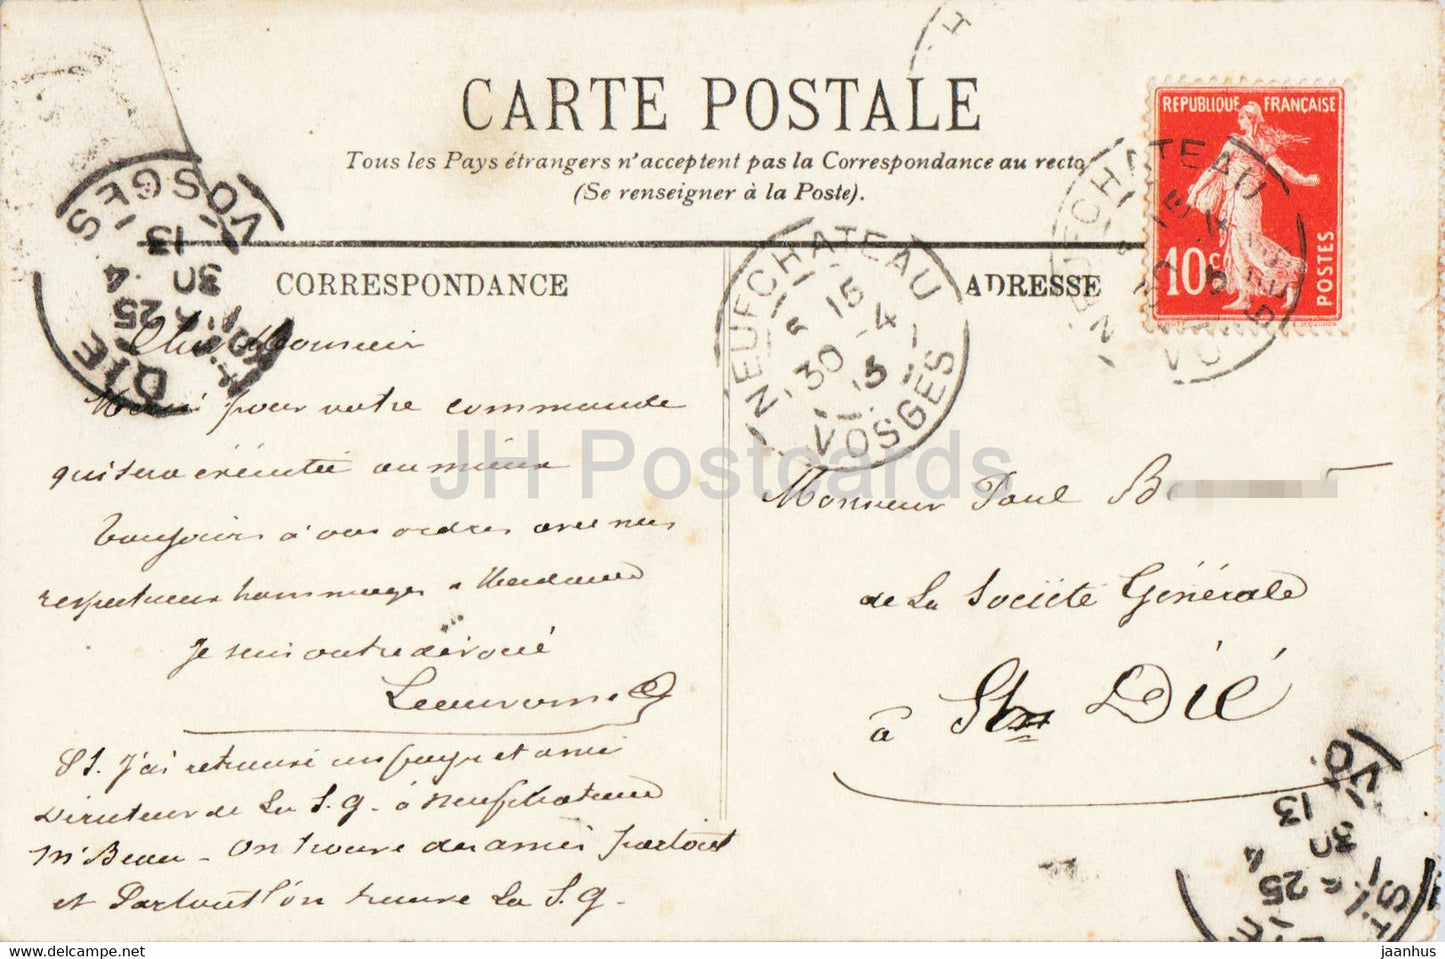 CARTE POSTALE
Tous les Pays étrangers n'acceptent pas la Correspondance au recto
(Se renseigner à la Poste).
REPUBLIQUE FRANÇAISE
10c
POSTES
CORRESPONDANCE
ADRESSE
NEUFCHATEAU
15
30 -4
13
VOSGES
NEUFCHATEAU
VOSGES
DIE
VOSGES
25
30 4
13
Cher Monsieur
Merci pour votre commande
qui sera exécutée au mieux
Toujours à vos ordres avec mes
respectueux hommages à Madame
Je suis votre dévoué
PS. J'ai retrouvé un pays et ami
Directeur de La S.G. à Neufchateau
Mr Beau - On trouve des amis partout
et Partout l'on trouve La S.G.
Monsieur Paul B
de La Société Générale
à St Dié
25 4
30
13
VO
JH Postcards
jaanhus.com
jaanhus